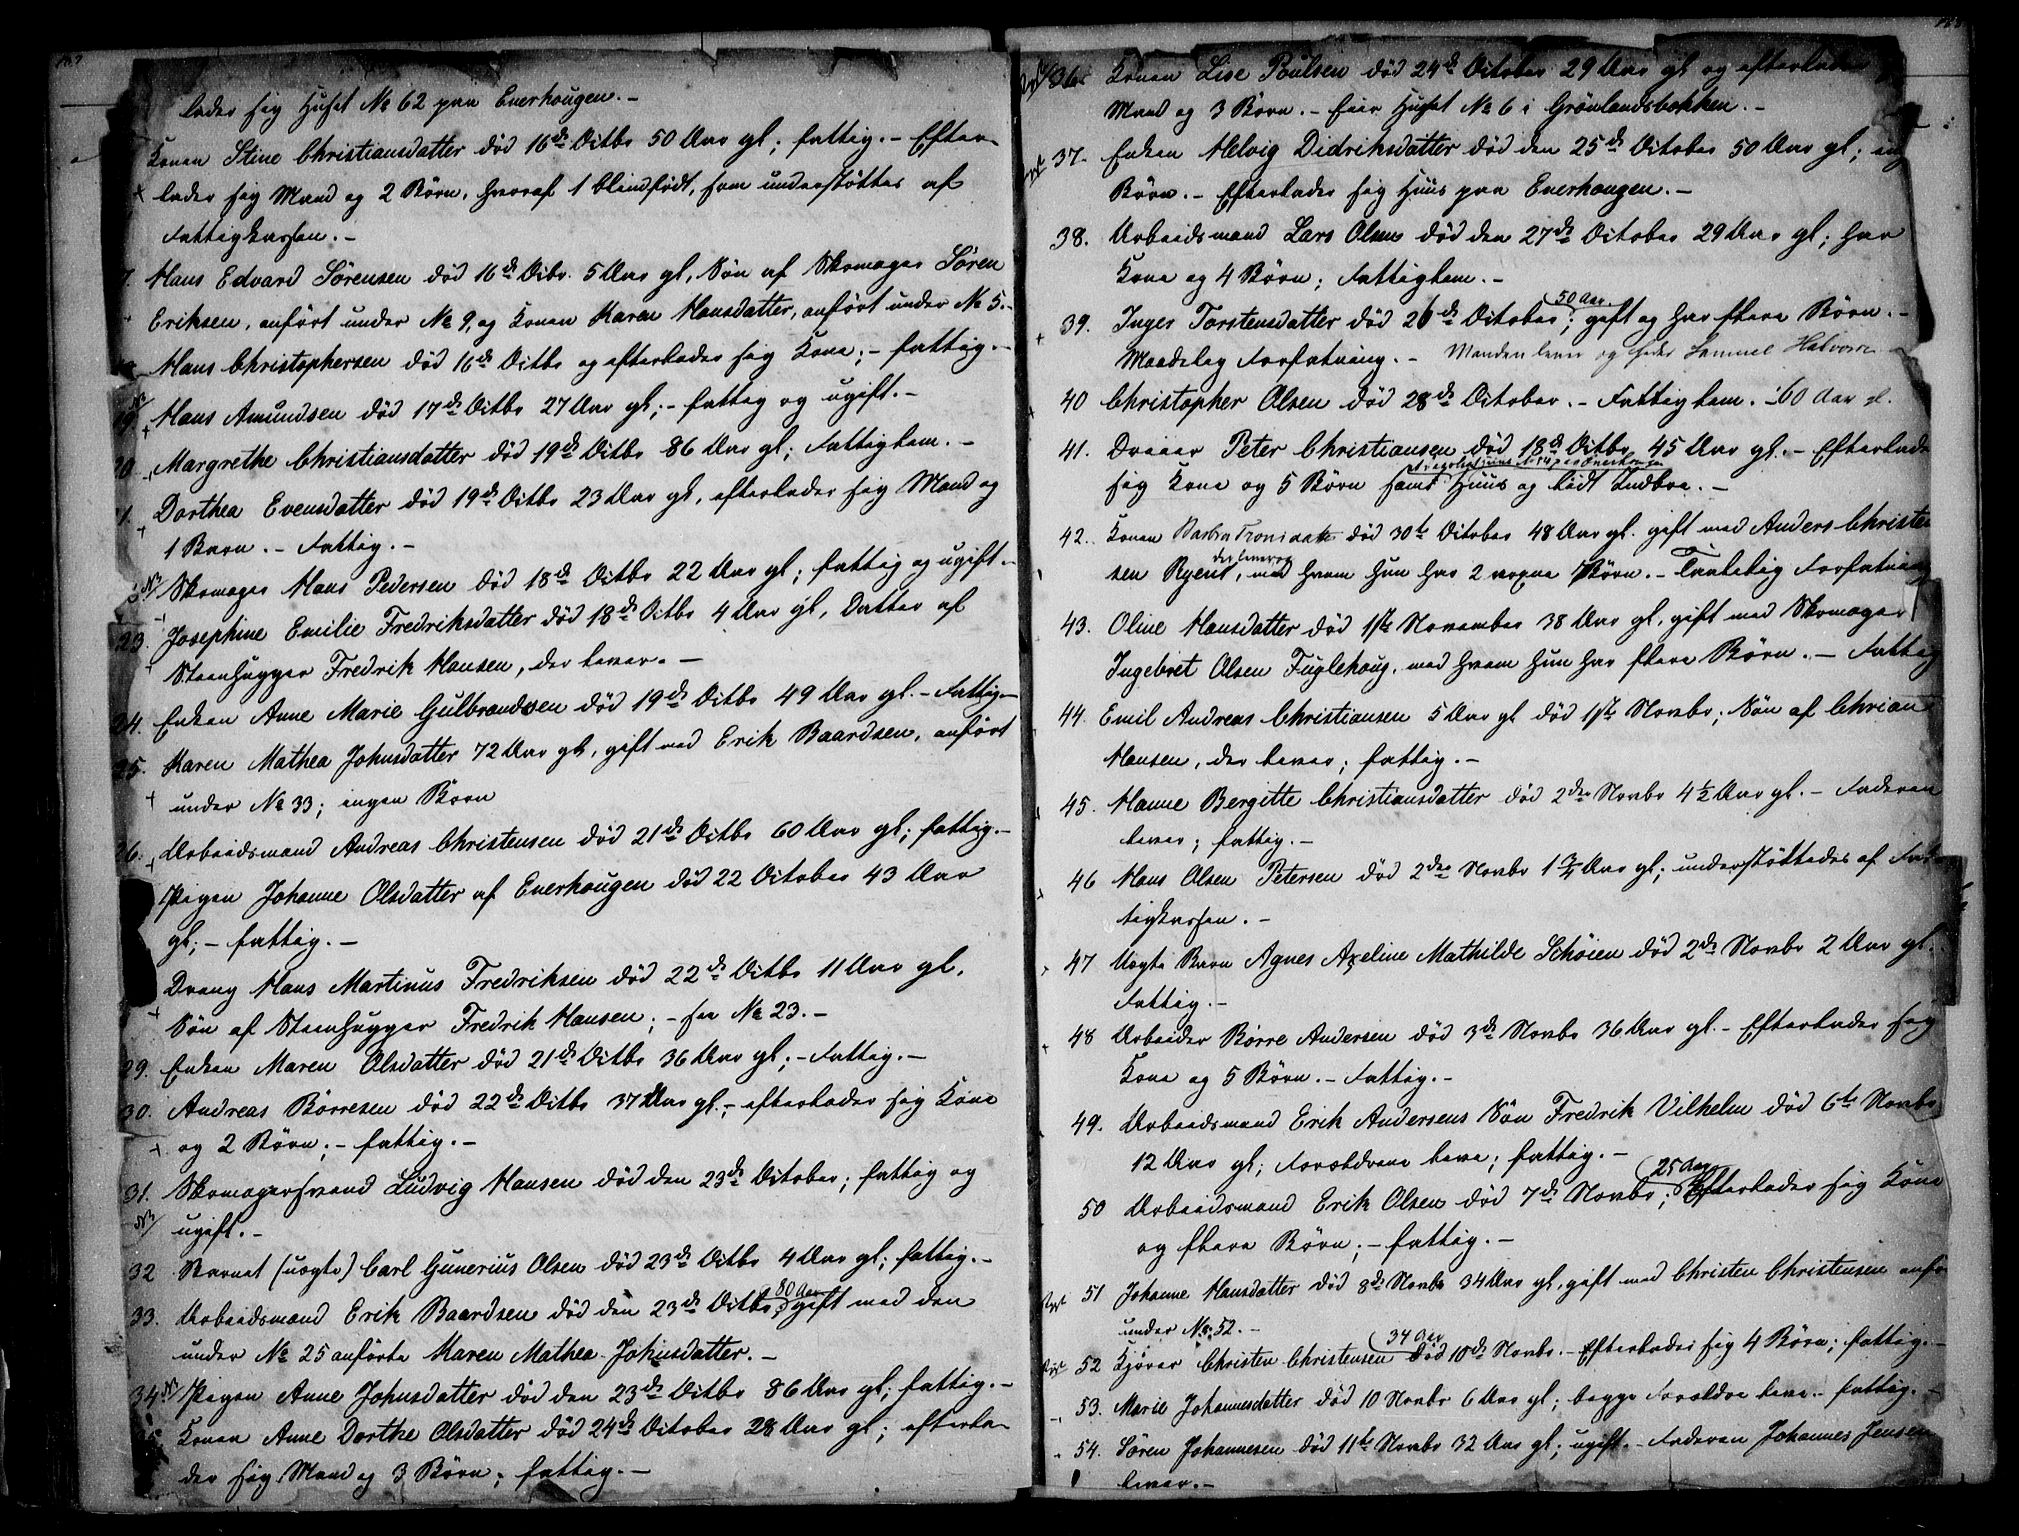 lader sig Huset No 62 paa Enerhougen. -
Konen Stine Christiansdatter død 16de Octbr 50 Aar gl; fattig. - Efter-
lader sig Mand og 2 Børn, hvoraf 1 blindfødt, som understøttes af
Fattigkassen. -
7. Hans Edvard Sørensen død 16de Octbr. 5 Aar gl, Søn af Skomager Søren
Eriksen, anført under No 9, og Konen Karen Hansdatter, anført under No 5. -
Hans Christophersen død 16de Octbr og efterlader sig Kone; - fattig. -
19. Hans Amundsen død 17de Octbr 27 Aar gl; - fattig og ugift. -
20. Margrethe Christiansdatter død 19de Octbr 86 Aar gl; Fattiglem. -
1. Dorthea Evensdatter død 19de Octbr 23 Aar gl, efterlader sig Mand og
1 Barn. - Fattig. -
Skomager Hans Pedersen død 18de Octbr 22 Aar gl; fattig og ugift. -
23. Josephine Emilie Fredriksdatter død 18de Octbr 4 Aar gl, Datter af
Steenhugger Fredrik Hansen, der lever. -
24. Enken Anne Marie Gulbrandsen død 19de Octbr 49 Aar gl. - Fattig. -
25. Karen Mathea Johnsdatter 72 Aar gl, gift med Erik Baardsen, anført
under No 33; ingen Børn
26. Arbeidsmand Andreas Christensen død 21de Octbr 60 Aar gl; fattig. -
Pigen Johanne Olsdatter af Enerhougen død 22 October 43 Aar
gl; - fattig. -
Dreng Hans Martinus Fredriksen død 22de Octbr 11 Aar gl.
Søn af Steenhugger Fredrik Hansen; - see No 23. -
29. Enken Maren Olsdatter død 21de Octbr 36 Aar gl; - Fattig. -
30. Andreas Børresen død 22de Octbr 37 Aar gl; - efterlader sig Kone
og 2 Børn; - fattig. -
31. Skomagersvend Ludvig Hansen død den 23de October; fattig og
ugift. -
32 Barnet (uægte) Carl Gunerius Olsen død 23de Octbr 4 Aar gl; fattig. -
80 Aar
33. Arbeidsmand Erik Baardsen død den 23de Octbr; gift med den
under No 25 anførte Karen Mathea Johnsdatter. -
34. Pigen Anne Johnsdatter død den 23de Octbr 86 Aar gl; fattig. -
Konen Anne Dorthe Olsdatter død 24de October 28 Aar gl; efterla-
der sig Mand og 3 Børn; fattig. -
36. Konen Lise Poulsen død 24de October 29 Aar gl og efterlader
Mand og 3 Børn. - Eier Huset No 6 i Grønlandsbakken. -
37. Enken Helvig Didriksdatter død den 25de October 50 Aar gl;
Børn. - Efterlader sig Huus paa Enerhougen. -
38. Arbeidsmand Lars Olsen død den 27de October 29 Aar gl; har
Kone og 4 Børn; Fattiglem. -
50 Aar
39. Inger Torstensdatter død 26de October; gift og har flere Børn. -
Maadelig Forfatning. - Manden lever og heder Samuel Halvorsen
40 Christopher Olsen død 28de October. - Fattiglem. - 60 Aar gl.
41. Dreier Peter Christiansen død 18de Octbr 45 Aar gl. - Efterlader
sig Kone og 5 Børn samt Huus og lidt Indboe. -
42. Konen død 30te October 48 Aar gl. gift med Anders Christen-
der lever og
sen Ryent, med hvem hun har 2 voxne Børn. - Taalelig Forfatning
43. Oline Hansdatter død 1ste November 38 Aar gl, gift med Skomager
Ingebret Olsen Fuglehaug, med hvem hun har flere Børn. - Fattig
44. Emil Andreas Christiansen 5 Aar gl død 1ste Novbr; Søn af Chrian
Hansen, der lever; fattig. -
45. Hanne Bergitte Christiansdatter død 2den Novbr 4½ Aar gl. - Faderen
lever; fattig. -
46 Hans Olsen Petersen død 2den Novbr 1¾ Aar gl; understøttedes af Fat-
tigkassen. -
47 Uægte Barn Agnes Axeline Mathilde Schøien død 2de Novbr 2 Aar gl.
Fattig. -
48 Arbeider Børre Andersen død 3de Novbr 36 Aar gl. - Efterlader sig
Kone og 5 Børn. - Fattig. -
49. Arbeidsmand Erik Andersens Søn Fredrik Vilhelm død 6te Novbr
12 Aar gl; Forældrene leve; fattig. -
25 Aar
50 Arbeidsmand Erik Olsen død 7de Novbr; Efterlader sig Kone
og flere Børn; - fattig. -
51 Johanne Hansdatter død 8de Novbr 34 Aar gl, gift med Christen Christensen anf.
under No. 52. -
34 Aar
52 Kjører Christen Christensen død 10de Novbr. - Efterlader sig 4 Børn; fattig. -
53. Marie Johannesdatter død 10 Novbr 6 Aar gl; begge Forældre leve. - fattig. -
54. Søren Johannesen død 11te Novbr 32 Aar gl; ugift. - Faderen Johannes Jensen
lever. -